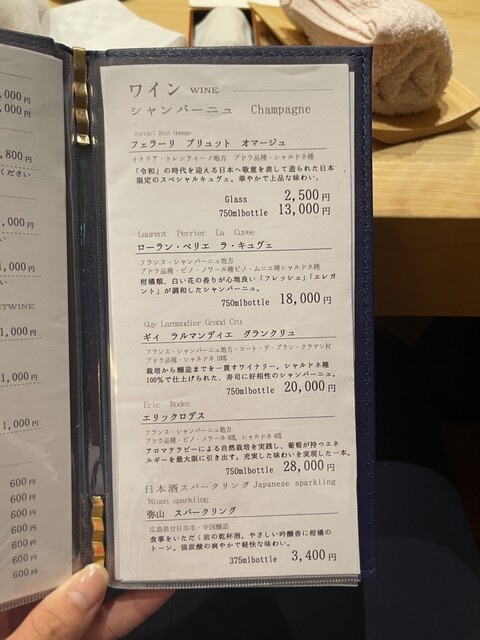 円
,000円
,800円
ください
,000円
1,000円
TWINE
1,000円
1,000円
1,000円
600円
600円
600円
600円
600円
600円
600円
ワイン WINE
シャンパーニュ Champagne
Ferrari Brut Homage
フェラーリ ブリュット オマージュ
イタリア・トレンティーノ地方 ブドウ品種・シャルドネ種
「令和」の時代を迎える日本へ敬意を表して造られた日本
限定のスペシャルキュヴェ。華やかで上品な味わい。
Glass 2,500円
750mlbottle 13,000円
Laurent Perrier La Cuvee
ローラン・ペリエ ラ・キュヴェ
フランス・シャンパーニュ地方
ブドウ品種・ピノ・ノワール種ピノ・ムニエ種シャルドネ種
柑橘類、白い花の香りが心地良い「フレッシュ」「エレガ
ント」が調和したシャンパーニュ。
750mlbottle 18,000円
Guy Larmandier Grand Cru
ギィ ラルマンディエ グランクリュ
フランス・シャンパーニュ地方・コート・デ・ブラン・クラマン村
ブドウ品種・シャルドネ100%
栽培から醸造までを一貫すワイナリー。シャルドネ種
100%で仕上げられた、寿司に好相性のシャンパーニュ。
750mlbottle 20,000円
Eric Rodez
エリックロデズ
フランス・シャンパーニュ地方
ブドウ品種・ピノ・ノワール60%, シャルドネ40%
アロマテラピーによる自然栽培を実践し、葡萄が持つエネ
ルギーを最大限に引き出す。充実した味わいを実現した一本。
750mlbottle 28,000円
日本酒スパークリング Japanese sparkling
Misen sparkling
弥山 スパークリング
広島県廿日市市・中国醸造
食事をいただく前の乾杯酒。やさしい吟醸香に柑橘の
トーン。強炭酸の爽やかで軽快な味わい。
375mlbottle 3,400円